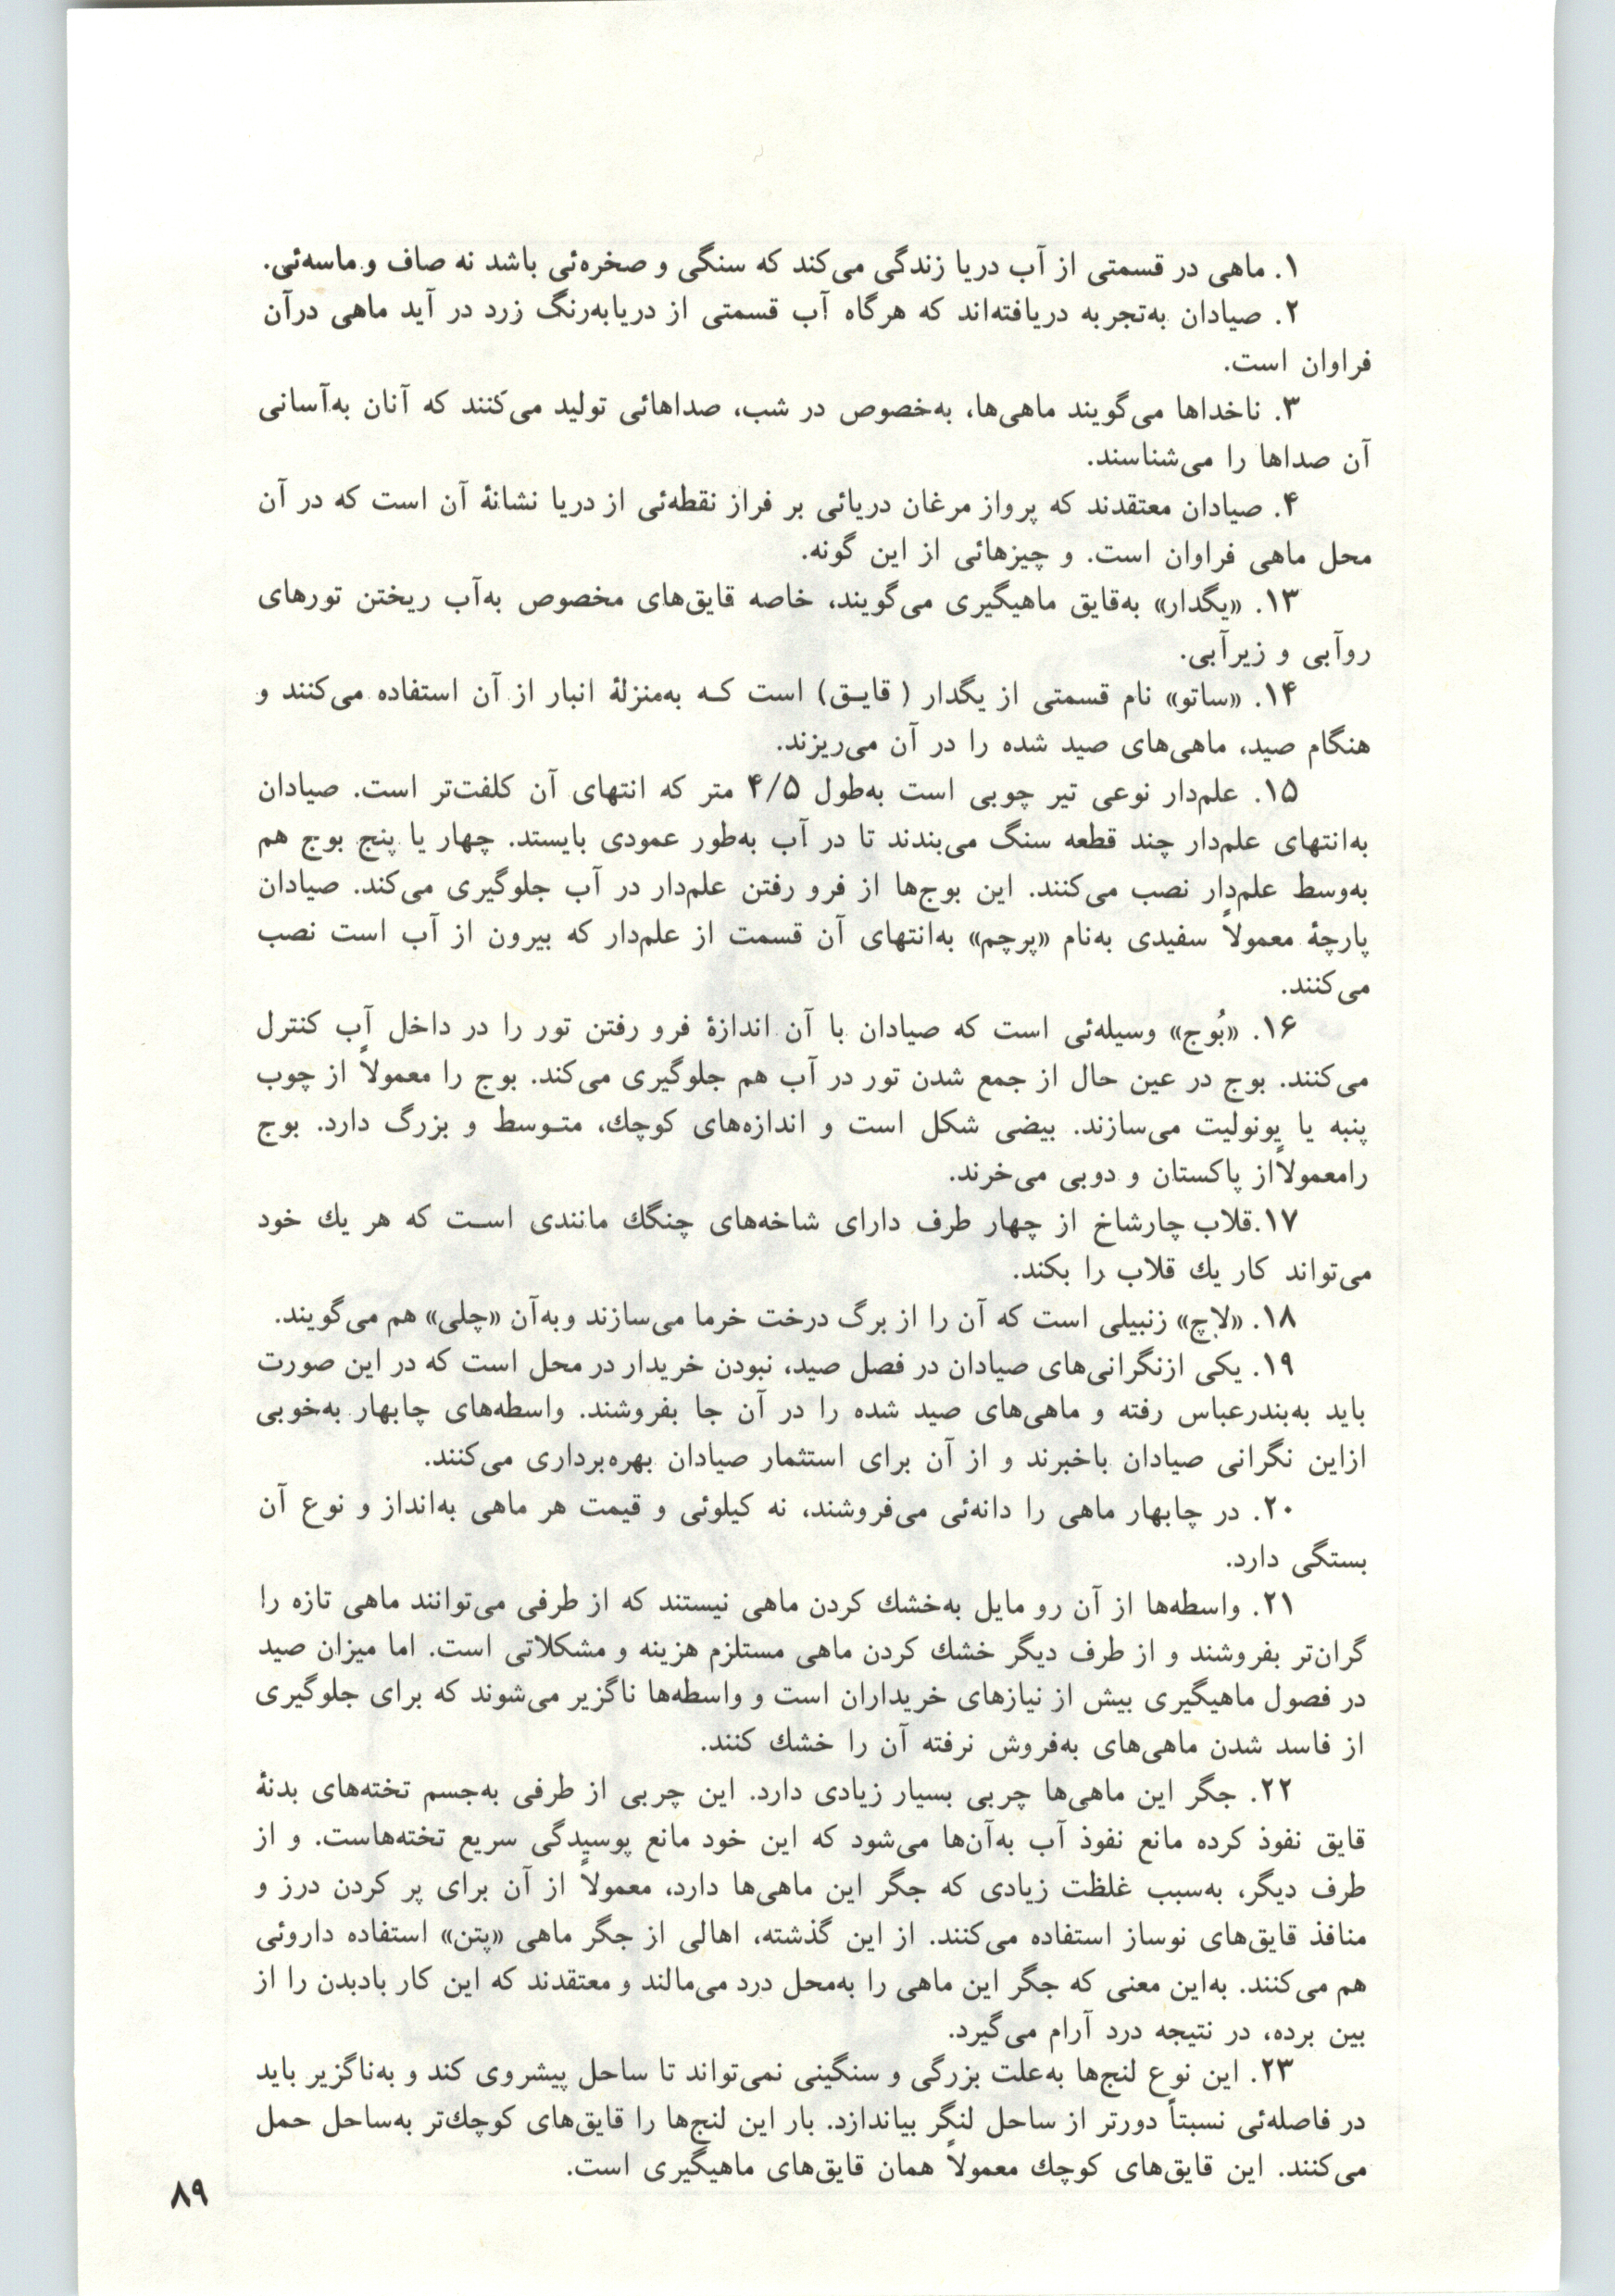 ۱. ماهی در قسمتی از آب دریا زندگی می‌کند که سنگی و صخره‌ئی باشد نه صاف و ماسه‌ئی.
۲. صیادان به‌تجربه دریافته‌اند که هرگاه آب قسمتی از دریابه‌رنگ زرد در آید ماهی درآن
فراوان است.
۳. ناخداها می‌گویند ماهی‌ها، به‌خصوص در شب، صداهائی تولید می‌کنند که آنان به‌آسانی
آن صداها را می‌شناسند.
۴. صیادان معتقدند که پرواز مرغان دریائی بر فراز نقطه‌ئی از دریا نشانهٔ آن است که در آن
محل ماهی فراوان است. و چیزهائی از این گونه.
۱۳. «یگدار» به‌قایق ماهیگیری می‌گویند، خاصه قایق‌های مخصوص به‌آب ریختن تورهای
روآبی و زیرآبی.
۱۴. «ساتو» نام قسمتی از یگدار ( قایـق) است کـه به‌منزلهٔ انبار از آن استفاده می‌کنند و
هنگام صید، ماهی‌های صید شده را در آن می‌ریزند.
۱۵. علم‌دار نوعی تیر چوبی است به‌طول ۴/۵ متر که انتهای آن کلفت‌تر است. صیادان
به‌انتهای علم‌دار چند قطعه سنگ می‌بندند تا در آب به‌طور عمودی بایستد. چهار یا پنج بوج هم
به‌وسط علم‌دار نصب می‌کنند. این بوج‌ها از فرو رفتن علم‌دار در آب جلوگیری می‌کند. صیادان
پارچهٔ معمولاً سفیدی به‌نام «پرچم» به‌انتهای آن قسمت از علم‌دار که بیرون از آب است نصب
می‌کنند.
۱۶. «بُوج» وسیله‌ئی است که صیادان با آن اندازهٔ فرو رفتن تور را در داخل آب کنترل
می‌کنند. بوج در عین حال از جمع شدن تور در آب هم جلوگیری می‌کند. بوج را معمولاً از چوب
پنبه یا یونولیت می‌سازند. بیضی شکل است و اندازه‌های کوچك، متـوسط و بزرگ دارد. بوج
رامعمولاًاز پاکستان و دوبی می‌خرند.
۱۷.قلاب چارشاخ از چهار طرف دارای شاخه‌های چنگك مانندی اسـت که هر یك خود
می‌تواند کار یك قلاب را بکند.
۱۸. «لاچ» زنبیلی است که آن را از برگ درخت خرما می‌سازند وبه‌آن «چلی» هم می‌گویند.
۱۹. یکی ازنگرانی‌های صیادان در فصل صید، نبودن خریدار در محل است که در این صورت
باید به‌بندرعباس رفته و ماهی‌های صید شده را در آن جا بفروشند. واسطه‌های چابهار به‌خوبی
ازاین نگرانی صیادان باخبرند و از آن برای استثمار صیادان بهره‌برداری می‌کنند.
۲۰. در چابهار ماهی را دانه‌ئی می‌فروشند، نه کیلوئی و قیمت هر ماهی به‌انداز و نوع آن
بستگی دارد.
۲۱. واسطه‌ها از آن رو مایل به‌خشك کردن ماهی نیستند که از طرفی می‌توانند ماهی تازه را
گران‌تر بفروشند و از طرف دیگر خشك کردن ماهی مستلزم هزینه و مشکلاتی است. اما میزان صید
در فصول ماهیگیری بیش از نیازهای خریداران است و واسطه‌ها ناگزیر می‌شوند که برای جلوگیری
از فاسد شدن ماهی‌های به‌فروش نرفته آن را خشك کنند.
۲۲. جگر این ماهی‌ها چربی بسیار زیادی دارد. این چربی از طرفی به‌جسم تخته‌های بدنهٔ
قایق نفوذ کرده مانع نفوذ آب به‌آن‌ها می‌شود که این خود مانع پوسیدگی سریع تخته‌هاست. و از
طرف دیگر، به‌سبب غلظت زیادی که جگر این ماهی‌ها دارد، معمولاً از آن برای پر کردن درز و
منافذ قایق‌های نوساز استفاده می‌کنند. از این گذشته، اهالی از جگر ماهی «پتن» استفاده داروئی
هم می‌کنند. به‌این معنی که جگر این ماهی را به‌محل درد می‌مالند و معتقدند که این کار بادبدن را از
بین برده، در نتیجه درد آرام می‌گیرد.
۲۳. این نوع لنج‌ها به‌علت بزرگی و سنگینی نمی‌تواند تا ساحل پیشروی کند و به‌ناگزیر باید
در فاصله‌ئی نسبتاً دورتر از ساحل لنگر بیاندازد. بار این لنج‌ها را قایق‌های کوچك‌تر به‌ساحل حمل
می‌کنند. این قایق‌های کوچك معمولاً همان قایق‌های ماهیگیری است.
۸۹